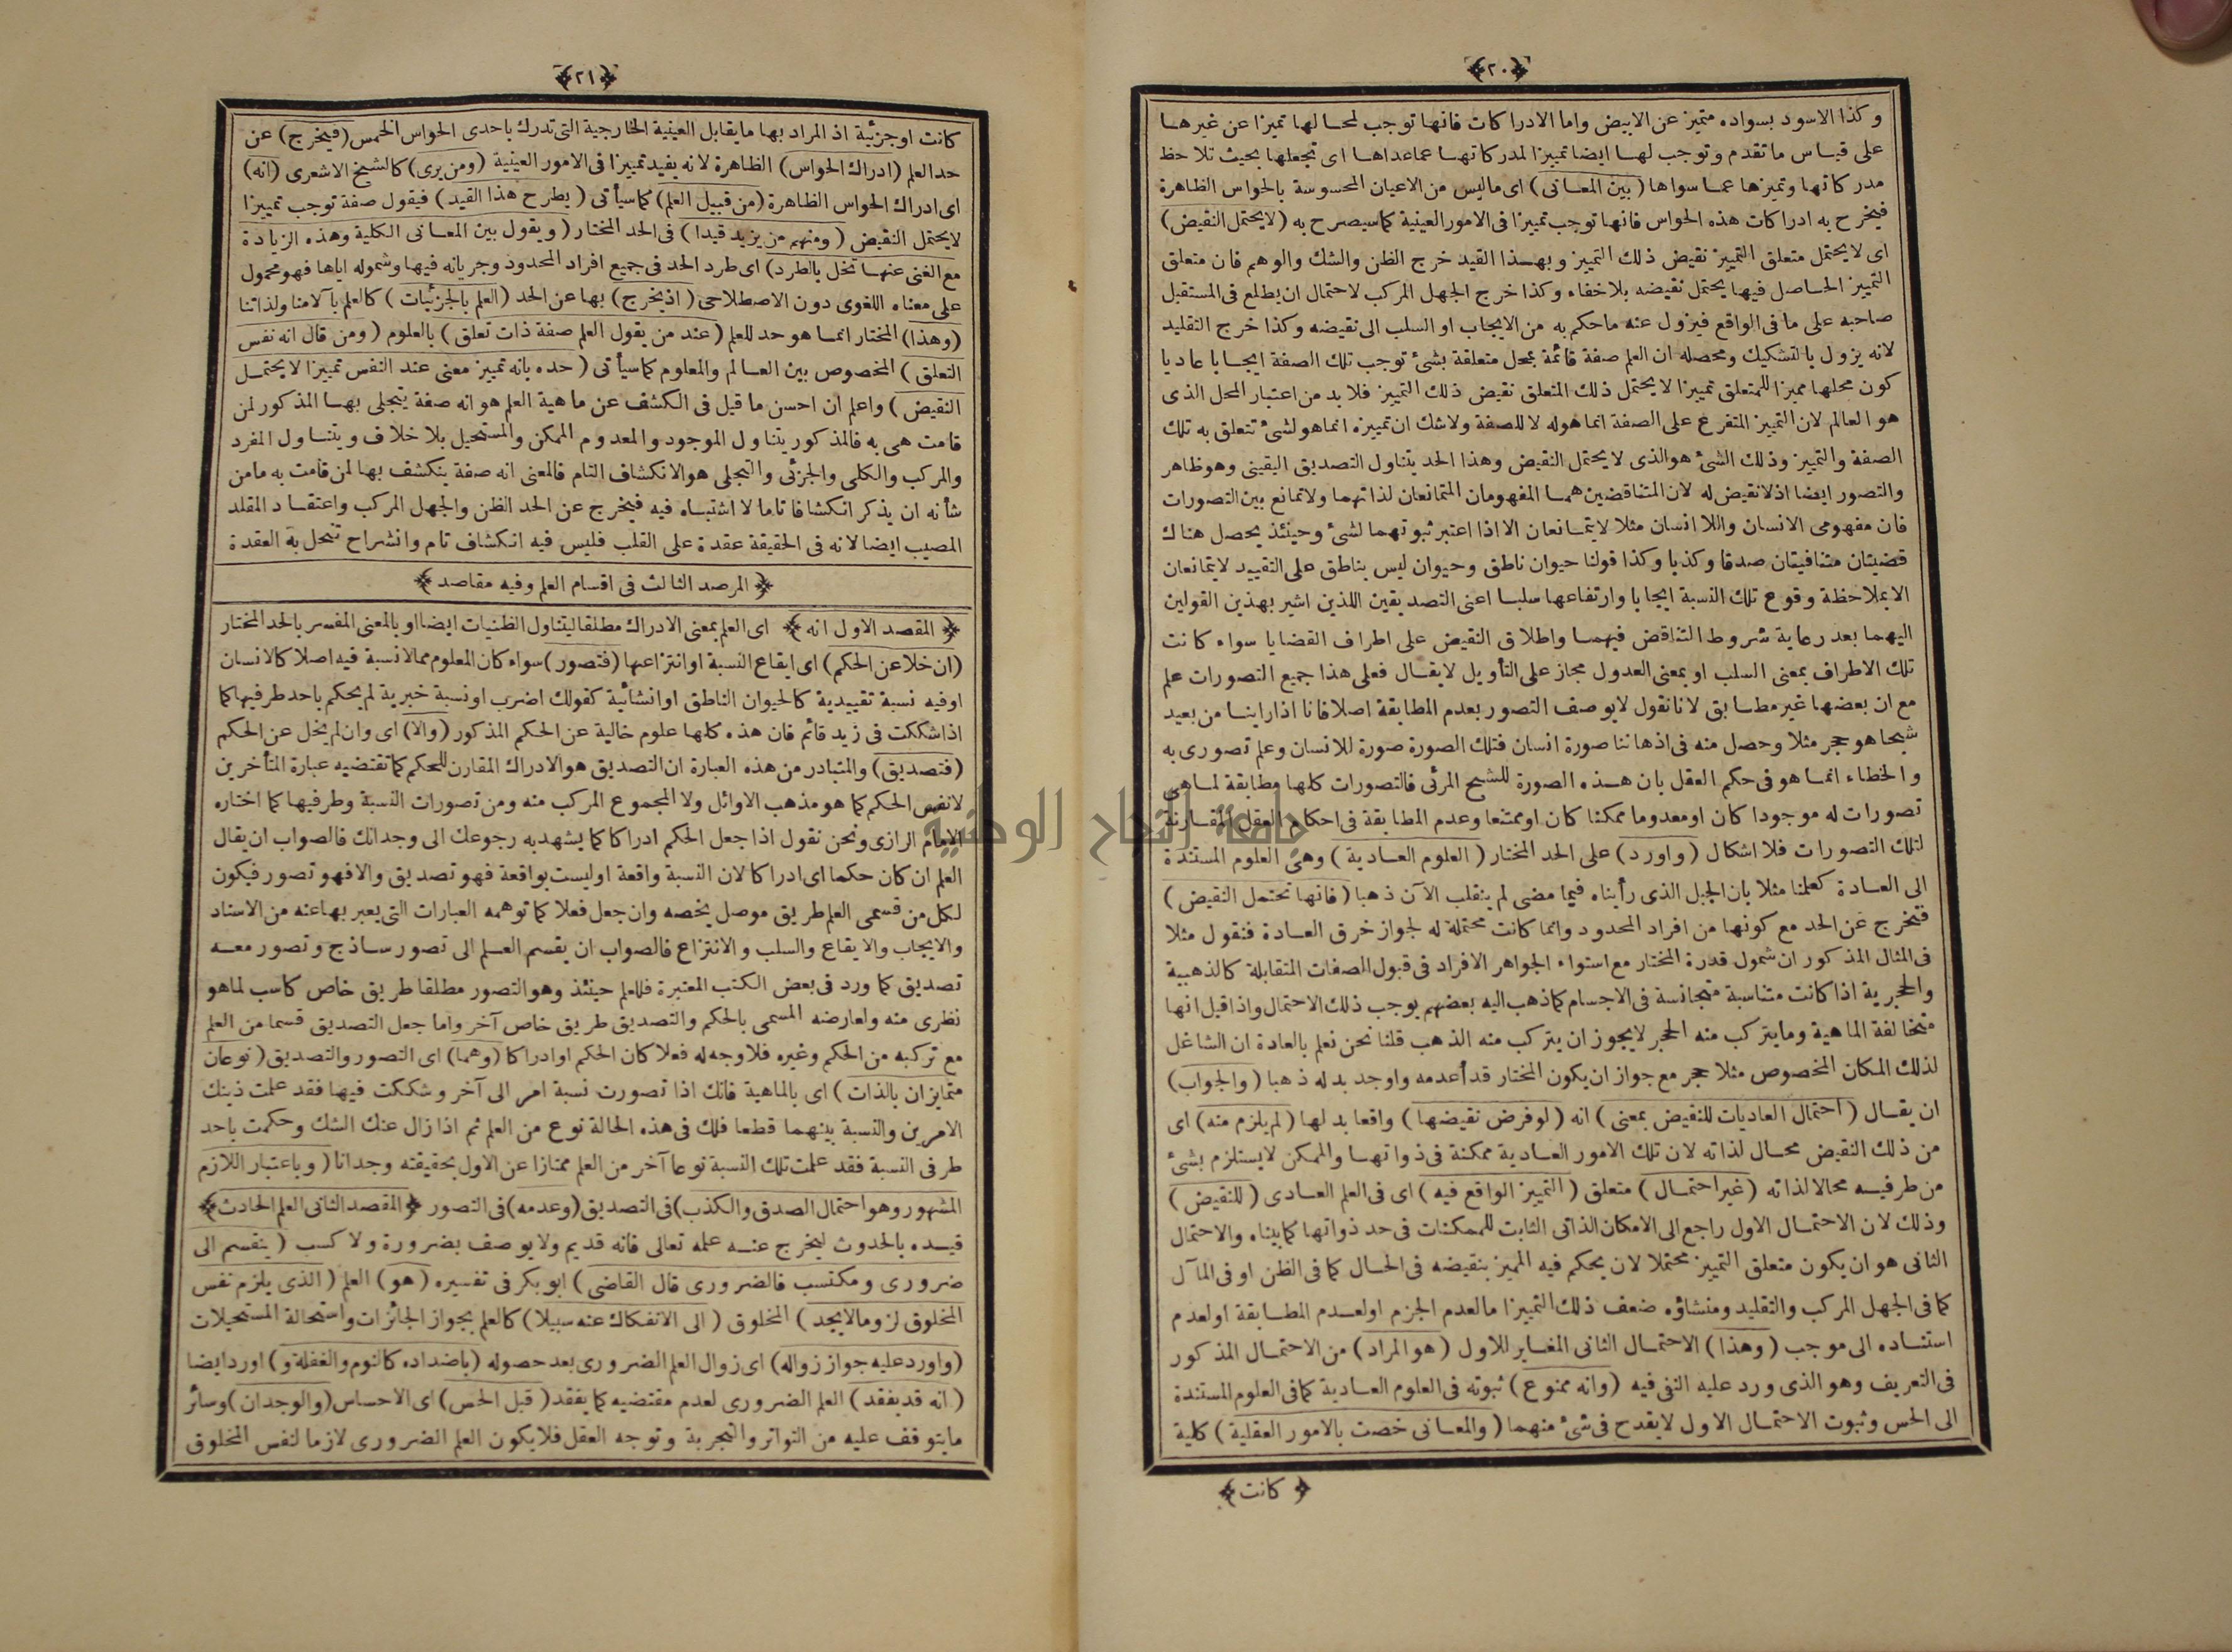 ﴿٢٠﴾
وكذا الاسود بسواده متميز عن الابيض واما الادراكات فانها توجب لمحالها تميزا عن غيرها
على قياس ما تقدم وتوجب لها ايضا تمييزا لمدركاتها عما عداها اى تجعلها بحيث تلاحظ
مدركاتها وتميزها عما سواها (بين المعانى) اى ماليس من الاعيان المحسوسة بالحواس الظاهرة
فيخرج به ادراكات هذه الحواس فانها توجب تمييزا فى الامور العينية كما سيصرح به (لا يحتمل النقيض)
اى لا يحتمل متعلق التمييز نقيض ذلك التمييز وبهذا القيد خرج الظن والشك والوهم فان متعلق
التمييز الحاصل فيها يحتمل نقيضه بلاخفاء وكذا خرج الجهل المركب لاحتمال ان يطلع فى المستقبل
صاحبه على ما فى الواقع فيزول عنه ماحكم به من الايجاب او السلب الى نقيضه وكذا خرج التقليد
لانه يزول بالتشكيك ومحصله ان العلم صفة قائمة بمحل متعلقة بشئ توجب تلك الصفة ايجابا عاديا
كون محلها مميزا للمتعلق تمييزا لا يحتمل ذلك المتعلق نقيض ذلك التمييز فلا بد من اعتبار المحل الذى
هو العالم لان التمييز المتفرع على الصفة انما هوله لا للصفة ولاشك ان تمييزه انما هو لشئ تتعلق به تلك
الصفة والتمييز وذلك الشئ هو الذى لا يحتمل النقيض وهذا الحد يتناول التصديق اليقينى وهو ظاهر
والتصور ايضا اذ لانقيض له لان المتناقضين هما المفهومان المتمانعان لذاتهما ولا تمانع بين التصورات
فان مفهومى الانسان واللا انسان مثلا لا يتمانعان الا اذا اعتبر ثبوتهما لشئ وحينئذ يحصل هناك
قضيتان متنافيتان صدقا وكذبا وكذا قولنا حيوان ناطق وحيوان ليس بناطق على التقييد لا يتمانعان
الا بملاحظة وقوع تلك النسبة ايجابا وارتفاعها سلبا اعنى التصديقين اللذين اشير بهذين القولين
اليهما بعد رعاية شروط التناقض فيهما واطلاق النقيض على اطراف القضايا سواء كانت
تلك الاطراف بمعنى السلب او بمعنى العدول مجاز على التأويل لا يقال فعلى هذا جميع التصورات علم
مع ان بعضها غير مطابق لانا نقول لا يوصف التصور بعدم المطابقة اصلا فانا اذا راينا من بعيد
شبحا هو حجر مثلا وحصل منه فى اذهاننا صورة انسان فتلك الصورة صورة للانسان وعلم تصورى به
والخطاء انما هو فى حكم العقل بان هذه الصورة للشبح المرئى فالتصورات كلها مطابقة لما هى
تصورات له موجودا كان او معدوما ممكنا كان او ممتنعا وعدم المطابقة فى احكام العقل المقارنة
لتلك التصورات فلا اشكال (واورد) على الحد المختار (العلوم العادية) وهى العلوم المستندة
الى العادة كعلمنا مثلا بان الجبل الذى رأيناه فيما مضى لم ينقلب الآن ذهبا (فانها تحتمل النقيض)
فتخرج عن الحد مع كونها من افراد المحدود وانما كانت محتملة له لجواز خرق العادة فنقول مثلا
فى المثال المذكور ان شمول قدرة المختار مع استواء الجواهر الافراد فى قبول الصفات المتقابلة كالذهبية
والحجرية اذا كانت متناسبة متجانسة فى الاجسام كما ذهب اليه بعضهم يوجب ذلك الاحتمال واذا قيل انها
متخالفة الماهية وما يتركب منه الحجر لا يجوز ان يتركب منه الذهب قلنا نحن نعلم بالعادة ان الشاغل
لذلك المكان المخصوص مثلا حجر مع جواز ان يكون المختار قد أعدمه واوجد بدله ذهبا (والجواب)
ان يقال (احتمال العاديات للنقيض بمعنى) انه (لو فرض نقيضها) واقعا بدلها (لم يلزم منه) اى
من ذلك النقيض محال لذاته لان تلك الامور العادية ممكنة فى ذواتها والممكن لا يستلزم بشئ
من طرفيه محالا لذاته (غير احتمال) متعلق (التمييز الواقع فيه) اى فى العلم العادى (للنقيض)
وذلك لان الاحتمال الاول راجع الى الامكان الذاتى الثابت للممكنات فى حد ذواتها كما بيناه والاحتمال
الثانى هو ان يكون متعلق التمييز محتملا لان يحكم فيه المميز بنقيضه فى الحال كما فى الظن او فى المآل
كما فى الجهل المركب والتقليد ومنشاؤه ضعف ذلك التمييز اما لعدم الجزم او لعدم المطابقة او لعدم
استناده الى موجب (وهذا) الاحتمال الثانى المغاير للاول (هو المراد) من الاحتمال المذكور
فى التعريف وهو الذى ورد عليه النفى فيه (وانه ممنوع) ثبوته فى العلوم العادية كما فى العلوم المستندة
الى الحس وثبوت الاحتمال الاول لا يقدح فى شئ منهما (والمعانى خصت بالامور العقلية) كلية
﴿كانت﴾
﴿٢١﴾
كانت او جزئية اذ المراد بها ما يقابل العينية الخارجية التى تدرك باحدى الحواس الخمس (فيخرج) عن
حد العلم (ادراك الحواس) الظاهرة لانه يفيد تمييزا فى الامور العينية (ومن يرى) كالشيخ الاشعرى (انه)
اى ادراك الحواس الظاهرة (من قبيل العلم) كما سيأتى (يطرح هذا القيد) فيقول صفة توجب تمييزا
لا يحتمل النقيض (ومنهم من يزيد قيدا) فى الحد المختار (ويقول بين المعانى الكلية وهذه الزيادة
مع الغنى عنها تخل بالطرد) اى طرد الحد فى جميع افراد المحدود وجريانه فيها وشموله اياها فهو محمول
على معناه اللغوى دون الاصطلاحى (اذ يخرج) بها عن الحد (العلم بالجزئيات) كالعلم بآلامنا ولذاتنا
(وهذا) المختار انما هو حد للعلم (عند من يقول العلم صفة ذات تعلق) بالعلوم (ومن قال انه نفس
التعلق) المخصوص بين العالم والمعلوم كما سيأتى (حده بانه تمييز معنى عند النفس تمييزا لا يحتمل
النقيض) واعلم ان احسن ما قيل فى الكشف عن ماهية العلم هو انه صفة يتجلى بها المذكور لمن
قامت هى به فالمذكور يتناول الموجود والمعدوم الممكن والمستحيل بلا خلاف ويتناول المفرد
والمركب والكلى والجزئى والتجلى هو الانكشاف التام فالمعنى انه صفة ينكشف بها لمن قامت به مامن
شأنه ان يذكر انكشافا تاما لا اشتباه فيه فيخرج عن الحد الظن والجهل المركب واعتقاد المقلد
المصيب ايضا لانه فى الحقيقة عقدة على القلب فليس فيه انكشاف تام وانشراح تنحل به العقدة
﴿المرصد الثالث فى اقسام العلم وفيه مقاصد﴾
﴿المقصد الاول انه﴾ اى العلم بمعنى الادراك مطلقا ليتناول الظنيات ايضا او بالمعنى المفسر بالحد المختار
(ان خلا عن الحكم) اى ايقاع النسبة او انتزاعها (فتصور) سواء كان المعلوم مما لا نسبة فيه اصلا كالانسان
او فيه نسبة تقييدية كالحيوان الناطق او انشائية كقولك اضرب او نسبة خبرية لم يحكم باحد طرفيها كما
اذا شككت فى زيد قائم فان هذه كلها علوم خالية عن الحكم المذكور (والا) اى وان لم يخل عن الحكم
(فتصديق) والمتبادر من هذه العبارة ان التصديق هو الادراك المقارن للحكم كما تقتضيه عبارة المتأخرين
لا نفس الحكم كما هو مذهب الاوائل ولا المجموع المركب منه ومن تصورات النسبة وطرفيها كما اختاره
الامام الرازى ونحن نقول اذا جعل الحكم ادراكا كما يشهد به رجوعك الى وجدانك فالصواب ان يقال
العلم ان كان حكما اى ادراكا لان النسبة واقعة او ليست بواقعة فهو تصديق والا فهو تصور فيكون
لكل من قسمى العلم طريق موصل يخصه وان جعل فعلا كما توهمه العبارات التى يعبر بها عنه من الاسناد
والايجاب والايقاع والسلب والانتزاع فالصواب ان يقسم العلم الى تصور ساذج وتصور معه
تصديق كما ورد فى بعض الكتب المعتبرة فللعلم حينئذ وهو التصور مطلقا طريق خاص كاسب لما هو
نظرى منه ولعارضه المسمى بالحكم والتصديق طريق خاص آخر واما جعل التصديق قسما من العلم
مع تركبه من الحكم وغيره فلا وجه له فعلا كان الحكم او ادراكا (وهما) اى التصور والتصديق (نوعان
متمايزان بالذات) اى بالماهية فانك اذا تصورت نسبة امر الى آخر وشككت فيها فقد علمت ذينك
الامرين والنسبة بينهما قطعا فلك فى هذه الحالة نوع من العلم ثم اذا زال عنك الشك وحكمت باحد
طرفى النسبة فقد علمت تلك النسبة نوعا آخر من العلم ممتازا عن الاول بحقيقته وجدانا (وباعتبار اللازم
المشهور وهو احتمال الصدق والكذب) فى التصديق (وعدمه) فى التصور ﴿المقصد الثانى العلم الحادث﴾
قيده بالحدوث ليخرج عنه علمه تعالى فانه قديم ولا يوصف بضرورة ولا كسب (ينقسم الى
ضرورى ومكتسب فالضرورى قال القاضى) ابو بكر فى تفسيره (هو) العلم (الذى يلزم نفس
المخلوق لزوما لا يجد) المخلوق (الى الانفكاك عنه سبيلا) كالعلم بجواز الجائزات واستحالة المستحيلات
(واورد عليه جواز زواله) اى زوال العلم الضرورى بعد حصوله (باضداده كالنوم والغفلة و) اورد ايضا
(انه قد يفقد) العلم الضرورى لعدم مقتضيه كما يفقد (قبل الحس) اى الاحساس (والوجدان) وسائر
ما يتوقف عليه من التواتر والتجربة وتوجه العقل فلا يكون العلم الضرورى لازما لنفس المخلوق
جامعة النجاح الوطنية